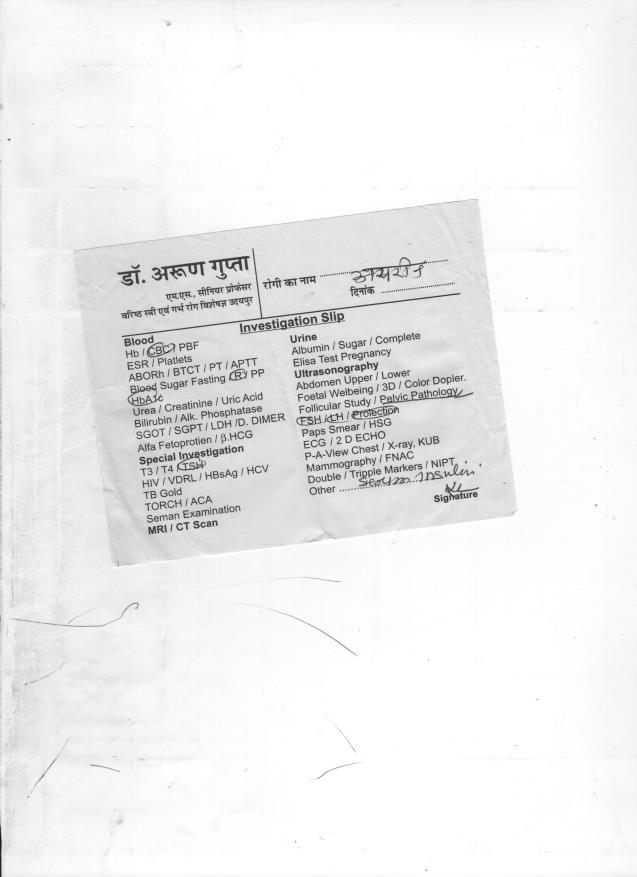 डॉ. अरूण गुप्ता
एम.एस., सीनियर प्रोफेसर
वरिष्ठ स्त्री एवं गर्भ रोग विशेषज्ञ उदयपुर
रोगी का नाम
दिनांक
Investigation Slip
Blood
Hb / CBC / PBF
ESR / Platlets
ABORh / BTCT / PT / APTT
Blood Sugar Fasting / R / PP
HbA1c
Urea / Creatinine / Uric Acid
Bilirubin / Alk. Phosphatase
SGOT / SGPT / LDH /D. DIMER
Alfa Fetoprotien / β.HCG
Special Investigation
T3 / T4 / TSH
HIV / VDRL / HBsAg / HCV
TB Gold
TORCH / ACA
Seman Examination
MRI / CT Scan
Urine
Albumin / Sugar / Complete
Elisa Test Pregnancy
Ultrasonography
Abdomen Upper / Lower
Foetal Welbeing / 3D / Color Dopler.
Follicular Study / Pelvic Pathology
FSH / LH / Prolection
Paps Smear / HSG
ECG / 2 D ECHO
P-A-View Chest / X-ray, KUB
Mammography / FNAC
Double / Tripple Markers / NIPT
Other .......... Serum Insulin.
Signature